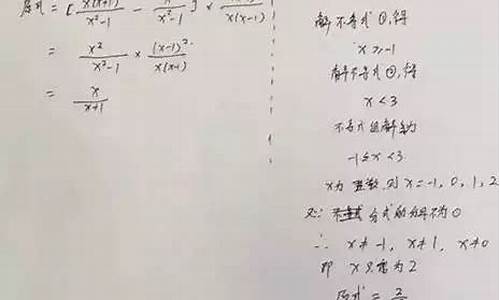 原式 = [ x(x+1) / x²-1 - x / x²-1 ] ×
= x² / x²-1 × (x-1)² / x(x-1)
= x / x+1
解不等式①,得
x ≥ -1
解不等式②,得
x < 3
不等式组解为
-1 ≤ x < 3
x为整数,则 x = -1, 0, 1, 2
又∵ 分式的分母不为0
∴ x ≠ -1, x ≠ 1, x ≠ 0
即 x 只能为 2
原式 = 2